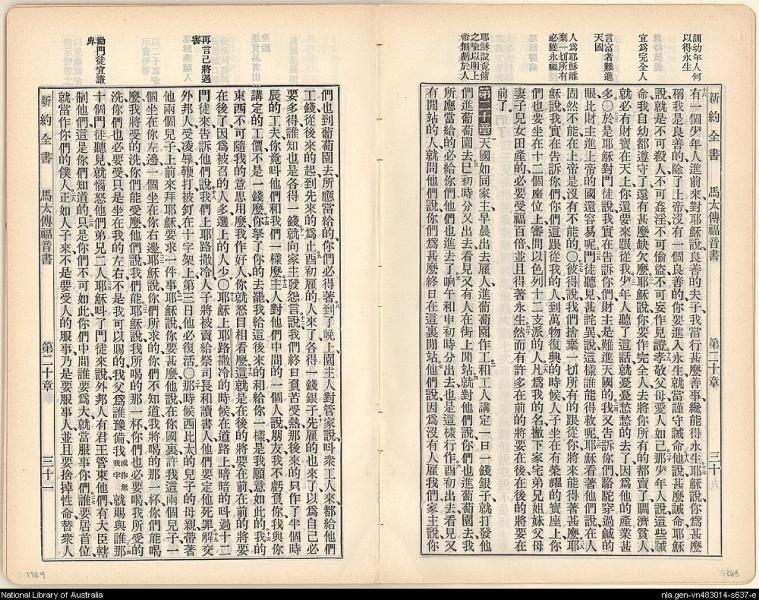 訓幼年人何
以得永生
宜爲完全人
言富者難進
天國
人爲耶穌離
棄一切所有
必獲永福
新約全書 馬太傳福音書 第二十章 三十
有一個少年人進前來對耶穌說良善的夫子我當行甚麼善事纔能得永生耶穌說你爲甚麼
稱我是良善的除了上帝沒有一個良善的你要進入永生就當謹守誡命他說甚麼誡命耶穌
說就是不可殺人不可姦淫不可偷盜不可妄作見證孝敬父母愛人如己那少年人說這些誡
命我自幼都遵守了還有甚麼缺欠麼耶穌說你要作完全人去將你所有的都賣了賙濟貧人
就必有財寶在天上你還要來跟從我少年人聽了這話就憂憂愁愁的去了因爲他的產業甚
多〇於是耶穌對門徒說我實在告訴你們財主是難進天國的我又告訴你們駱駝穿過鍼的
眼比財主進上帝的國還容易呢門徒聽見甚詫異說這樣誰能得救呢耶穌看著他們說在人
固然不能在上帝是沒有不能的〇彼得說我們捨棄一切所有的跟從你將來能得著甚麼耶
穌說我實在告訴你們你們這跟從我的人到萬物復興的時候人子坐在有榮耀的寶座上你
們也要坐在十二個座位上審問以色列十二支派的人凡爲我的名撇下家宅弟兄姐妹父母
妻子兒女田產的必要受福百倍並且得著永生然而有許多在前的將要在後在後的將要在
前了
第二十章 天國如同家主早晨出去雇人進葡萄園作工和工人講定一日一錢銀子就打發他
們進葡萄園去巳初時分又出去看見又有人在街上閒站就對他們說你們也進葡萄園去我
所應當給的必給你們他們也進去了晌午和申初時分出去也是這樣行作酉初出去看見又
有閒站的人就問他們說你們爲甚麼終日在這裏閒站他們說因爲沒有人雇我們家主說你
再言己將遇
害
勸門徒宜謙
卑
們也到葡萄園去所應當給的你們必得著到了晚上園主人對管家說叫衆工人來都給他們
工錢從後來的起到先來的爲止酉初雇的人來了各得一錢銀子先雇的也來了以爲自己必
要多得誰知也是各得一錢就向家主發怨言說我們終日負苦受熱那後來的只作了半個時
辰的工夫你竟叫他們和我們一樣麼主人對他們中間的一個人說朋友我不虧負你我與你
講定的工價不是一錢麼你拏了你的去罷我給這後來的和給你一樣是我願意如此的我的
東西不可隨我的意思用麼我作好人你就怒目相看麼這就是在後的將要在前在前的將要
在後了因爲被召的人多選上的人少〇耶穌上耶路撒冷的時候在道路上暗暗的叫過十二
門徒來告訴他們說我們上耶路撒冷人子將被賣給祭司長和讀書人他們要定他死罪解交
外邦人受凌辱鞭打被釘在十字架上第三日他必復活〇那時候西比太的兒子的母親帶著
他兩個兒子上前來拜耶穌要求一件事耶穌說你要甚麼他說在你國裏許我這兩個兒子一
個坐在你左邊一個坐在你右邊耶穌說你們所求的你們不知道我將喝的那一杯你們能喝
麼我將受的洗你們能受麼他們說我們能耶穌說我所喝的那一杯你們也必要喝我所受的
洗你們也必要受只是坐在我的左右不是我可以賜的我父爲誰豫備就賜與誰那
十個門徒聽見就惱怒他們弟兄二人耶穌叫了門徒來說外邦人有君王管束他們有大臣轄
制他們這是你們知道的只是你們不可如此你們中間誰要爲大就當服事你們誰要居首位
就當作你們的僕人正如人子來不是要受人的服事乃是要服事人並且要捨掉性命替衆人
新約全書 馬太傳福音書 第二十章 三十一
National Library of Australia
nla.gen-vn483014-s637-e